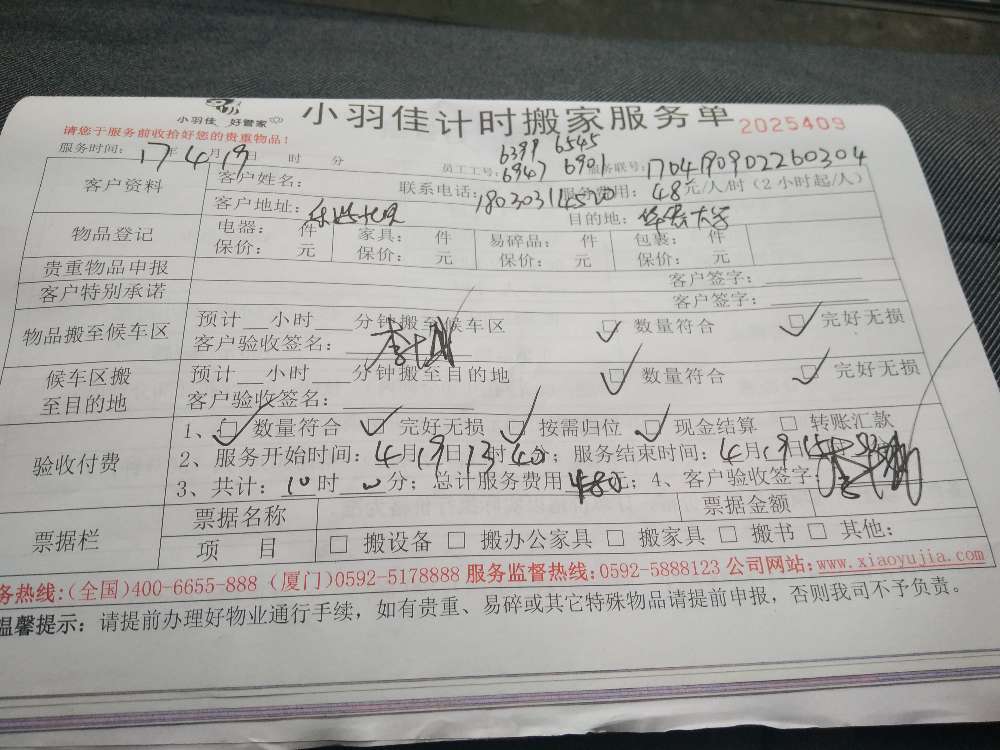 小羽佳 好管家
小羽佳计时搬家服务单 2025409
请您于服务前收拾好您的贵重物品！
服务时间：17年4月19日 时 分 员工工号：6399 6545 6947 6901 服务联号：1704190902260304
客户资料 客户姓名： 联系电话：18030314520 服务费用：48元/人/时（2小时起/人）
客户地址： 目的地：华侨大学
物品登记 电器： 件 家具： 件 易碎品： 件 包裹： 件
保价： 元 保价： 元 保价： 元 保价： 元
贵重物品申报 客户签字：
客户特别承诺 客户签字：
物品搬至候车区 预计__小时___分钟搬至候车区 数量符合 完好无损
客户验收签名：
候车区搬至目的地 预计__小时___分钟搬至目的地 数量符合 完好无损
客户验收签名：
验收付费 1、 数量符合 完好无损 按需归位 现金结算 转账汇款
2、服务开始时间：4月19日13时40分；服务结束时间：4月19日15
3、共计：10时 0分；总计服务费用480元；4、客户验收签字：
票据栏 票据名称 票据金额
项 目 □ 搬设备 □ 搬办公家具 □ 搬家具 □ 搬书 □ 其他：
务热线：(全国)400-6655-888 (厦门)0592-5178888 服务监督热线：0592-5888123 公司网站：www.xiaoyujia.com
温馨提示：请提前办理好物业通行手续，如有贵重、易碎或其它特殊物品请提前申报，否则我司不予负责。